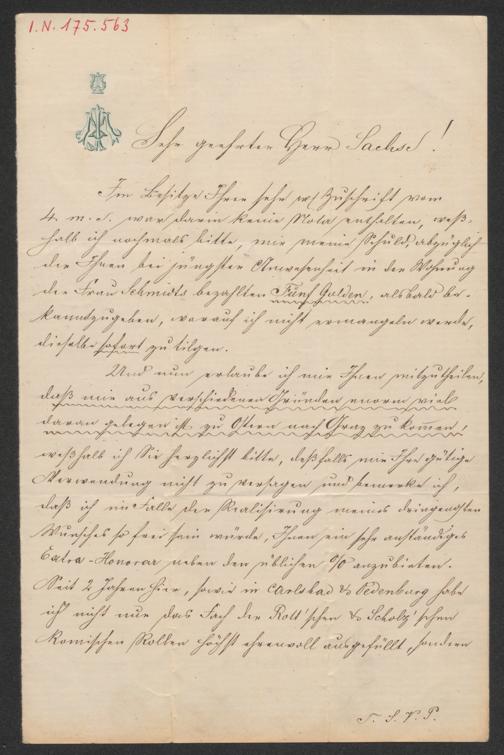 I.N. 175.563
Sehr geehrter Herr Sachse!
Im Besitze Ihrer sehr w/ Zuschrift vom
4. m. d. war darin keine Nota enthalten, weß-
halb ich nochmals bitte, mir meine Schuld, abzüglich
der Ihnen bei jüngster Anwesenheit in der Wohnung
der Frau Schmidts bezahlten Fünf Gulden, alsbald be-
kanntzugeben, worauf ich nicht ermangeln werde,
dieselbe sofort zu tilgen.
Und nun erlaube ich mir Ihnen mitzutheilen,
daß mir aus verschiedenen Gründen enorm viel
daran gelegen ist, zu Ostern nach Graz zu kommen,
weßhalb ich Sie herzlichst bitte, deßfalls mir Ihre gütige
Verwendung nicht zu versagen und bemerke ich,
daß ich im Falle der Realisirung meines dringengten
Wunsches so frei sein würde, Ihnen ein sehr anständiges
Extra-Honorar neben den üblichen % anzubieten.
Seit 2 Jahren hier, sowie in Carlsbad & Oedenburg habe
ich nicht nur das Fach der Rott'schen & Scholz'schen
komischen Rollen höchst ehrenvoll ausgefüllt, sondern
T. S. V. P.